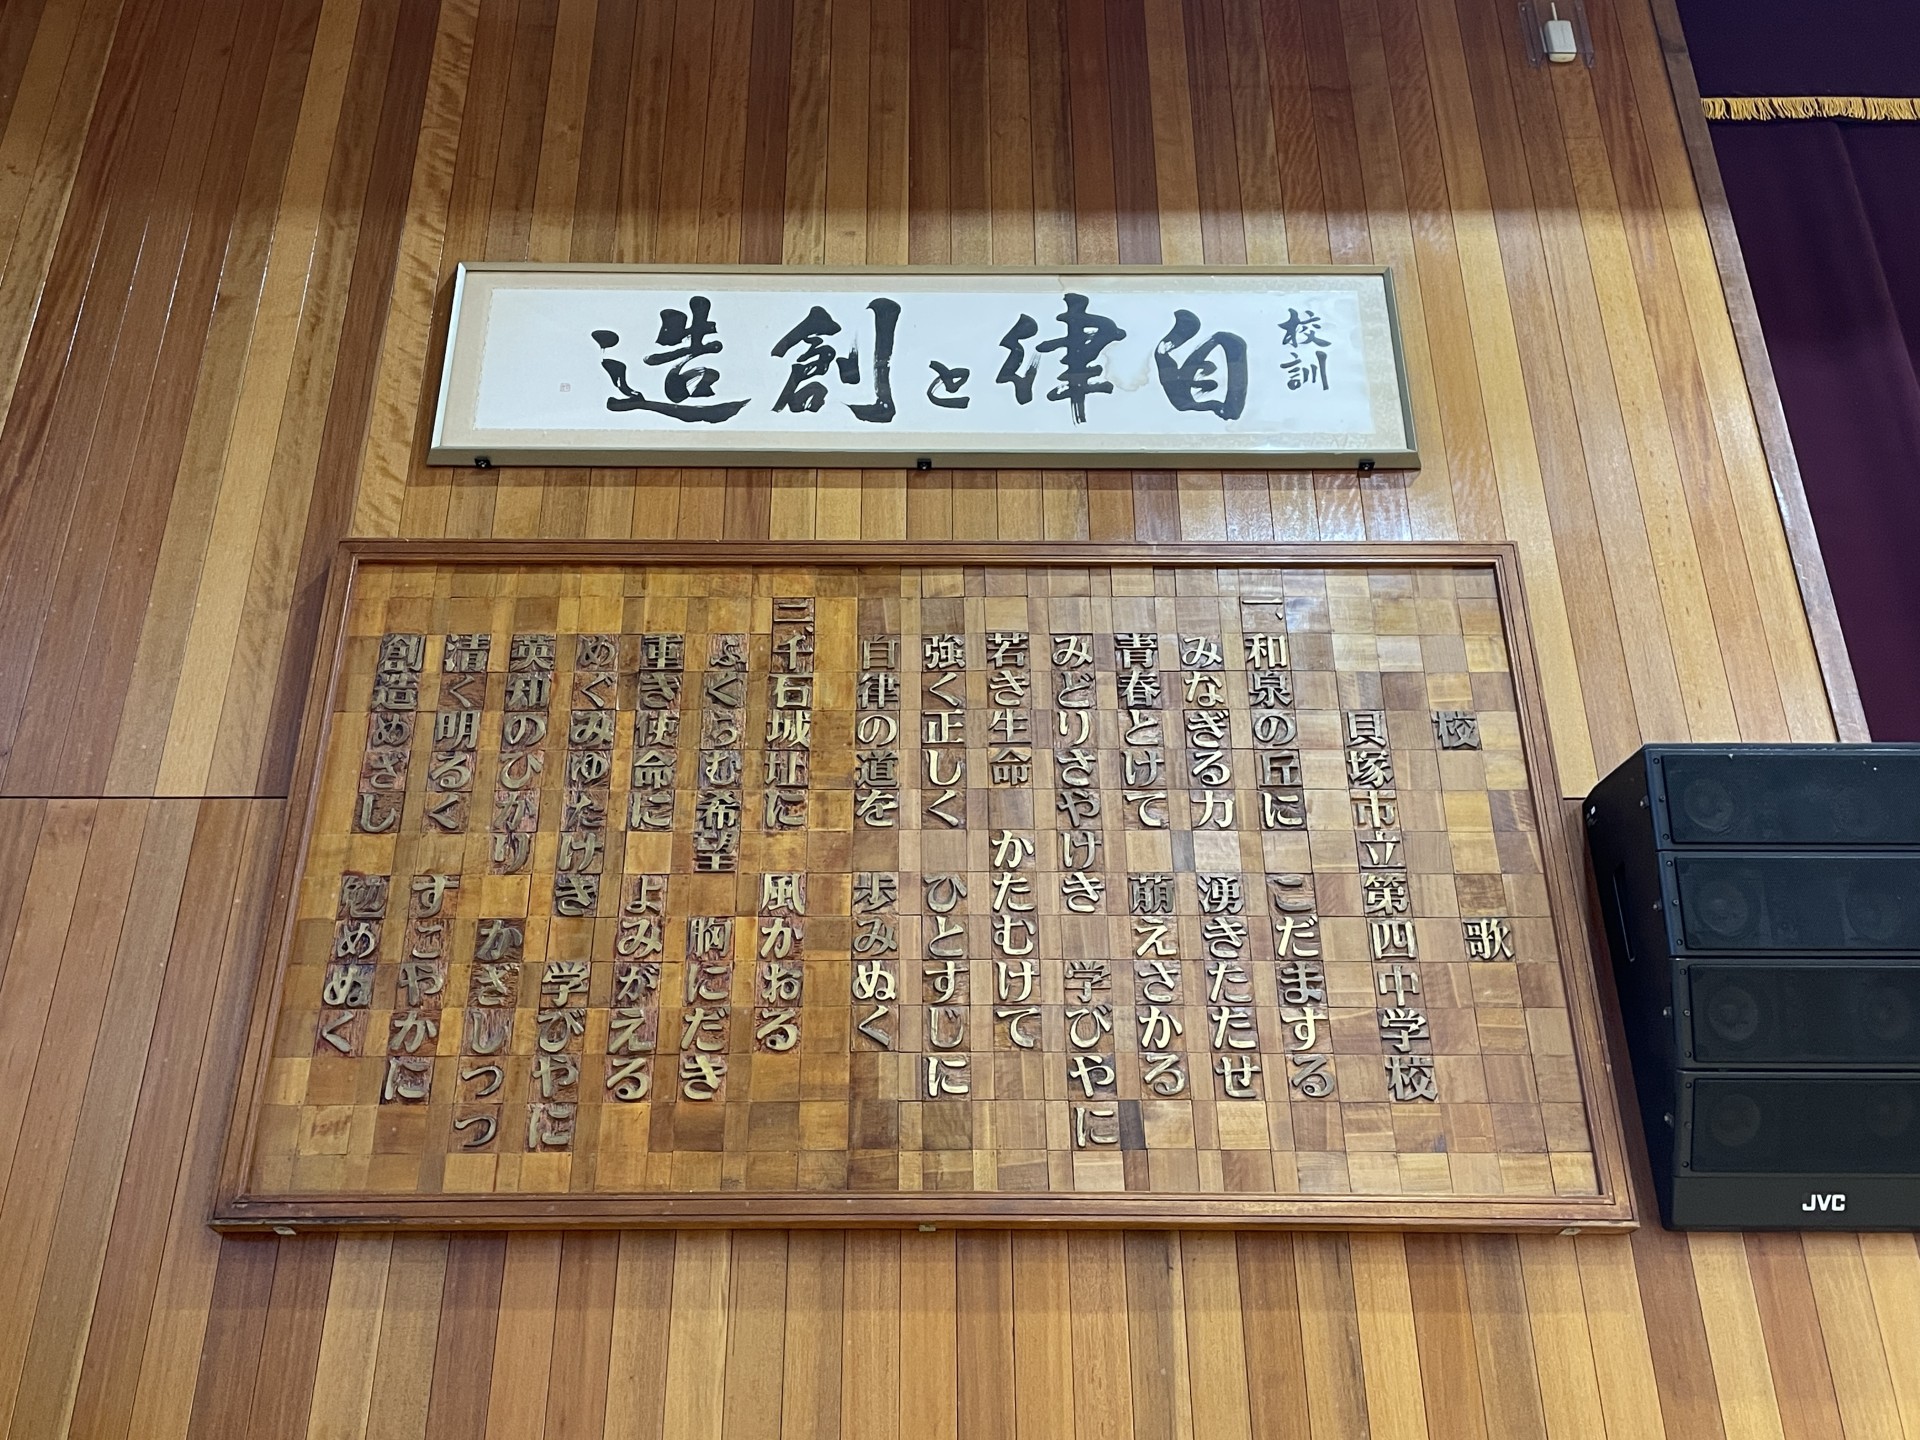 校訓
自律と創造
校 歌
貝塚市立第四中学校
一、和泉の丘に こだまする
みなぎる力 湧きたたせ
青春とけて 萠えさかる
みどりさやけき 学びやに
若き生命 かたむけて
強く正しく ひとすじに
自律の道を 歩みぬく
二、千石城址に 風かおる
ふくらむ希望 胸にだき
重き使命に よみがえる
めぐみゆたけき 学びやに
英知のひかり かざしつつ
清く明るく すこやかに
創造めざし 勉めぬく
JVC